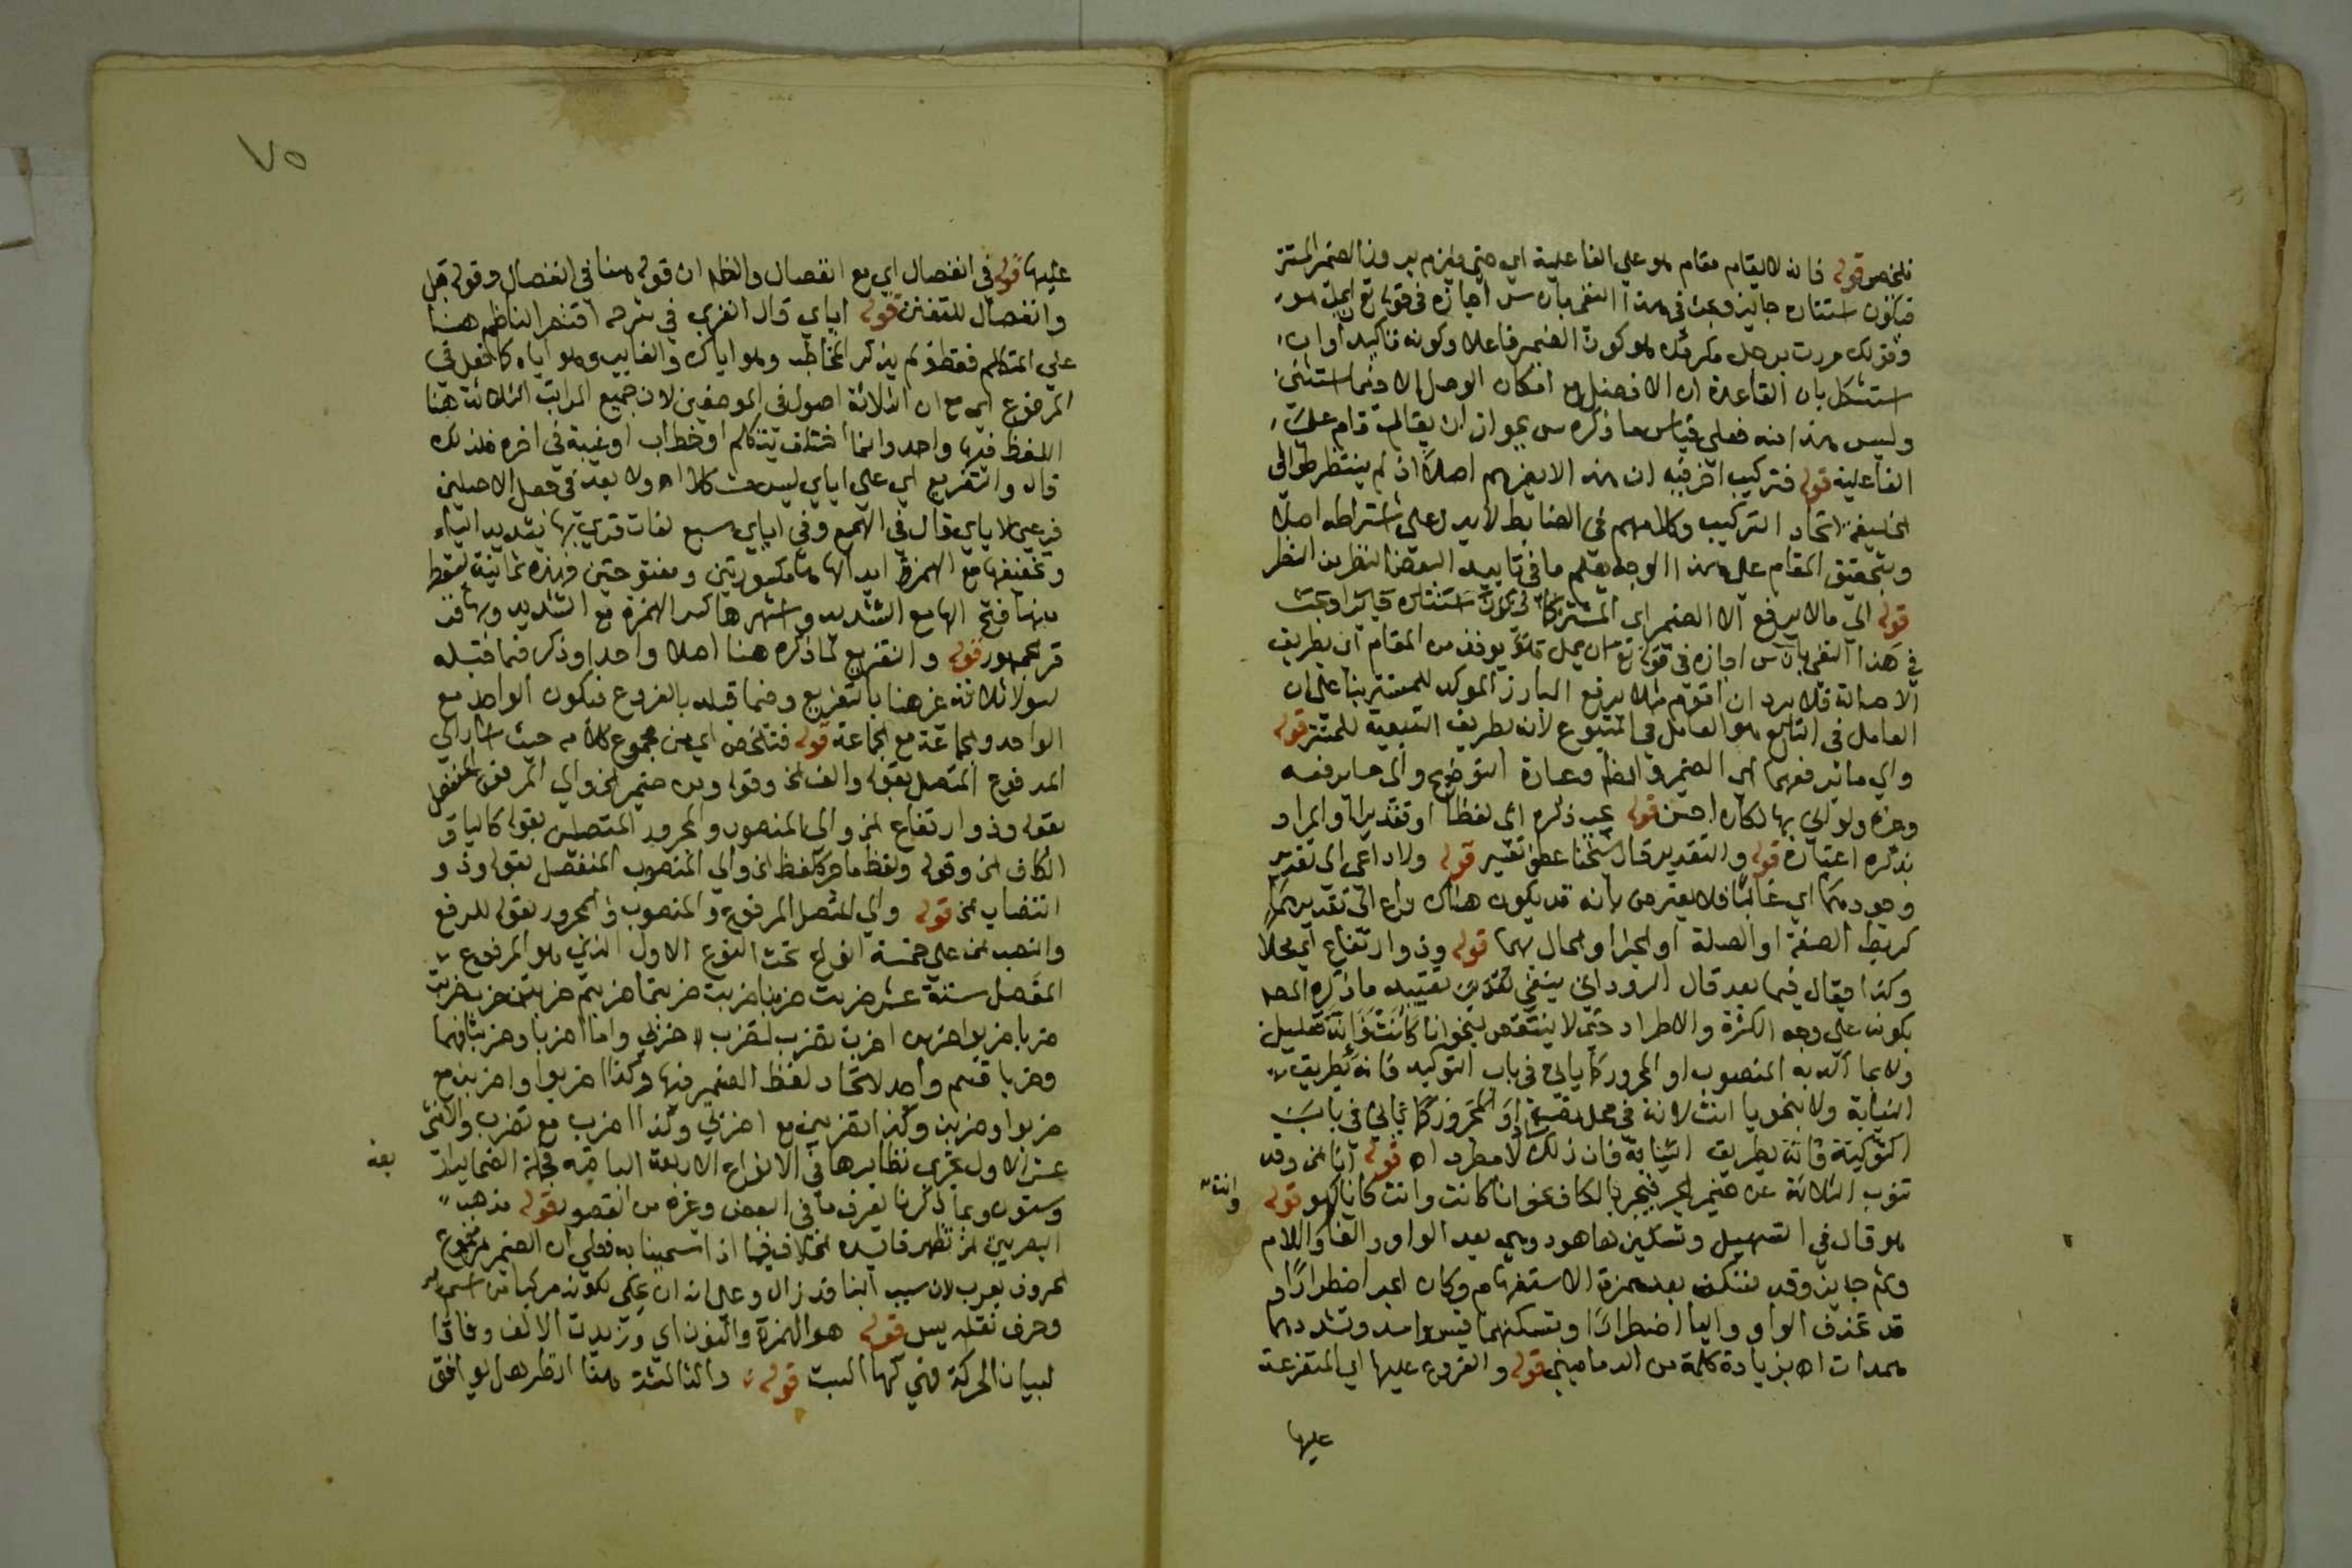 فلخص قوله فانه لا يقام مقام هو علي الفاعلية اي حتي يلزم بروز الضمير المستتر
فيكون استتاره جايز وبحث في هذا النفي بان س اجازه في قوله تع ان يمل هو
وقولك مررت برجل مكرمك هو كون الضمير فاعلا وكونه تاكيدا واب
استشكل بان القاعدة ان لا فصل مع امكان الوصل الا فيما استثني
وليس هذا منه فعلي قياس ما ذكره س بجواز ان يقال قام علي
الفاعلية قوله فتركيب اخر فيه ان هذا لا يضرهم اصلا اذ لم ينتظر طوالي
اتحاد التركيب وكلامهم في الضابط لا يدل علي اشتراطه اصلا
وبتحقيق المقام علي هذا الوجه يعلم ما في تاييد البعض النظر بن النظر
قوله الي ما لا يرفع الا الضمير اي المستتر كان استتاره جايزا وبحث
في هذا النفي بان س اجازه في قوله تع ان يمل من المقام ان بطريق
الاصالة فلا يرد ان اقوم مثلا يرفع البارز الموكد للمستتر بنا علي ان
العامل في التابع هو العامل في المتبوع لانه بطريق التبعية للمستتر قوله
والي ما يرفعهما اي الضمير والظ وعبارة التوضيح والي ما يرفعه
وغيره ولو اتي بها لكان احسن قوله يجب ذكره اي لفظا او تقديرا والمراد
بذكره اعتباره قوله والتقدير قال شيخنا عطف تفسير قوله ولا داعي الي تقدير
وجودهما اي غالبا فلا يعترض بانه قد يكون هناك داع الي تقديرهما
كربط الصفة او الصلة او الخبر او الحال بهما قوله وذو ارتفاع اي محلا
وكذا يقال فيما بعد قال الروداني ينبغي تقييده ما ذكره المص
بكونه علي وجه الكثرة والاطراد حتي لا ينتقض بنحو انا كانت
ولا بما اكد به المنصوب او المجرور كما ياتي في باب التوكيد فانه بطريق
النيابة ولا بنحو يا انت لانه في محل نصب او المجرور كما ياتي في باب
فانه بطريق النيابة فان ذلك لا مطرد اه قوله انا الخ وقد
تنوب الثلاثة عن ضمير الجر فيجر بالكاف نحو انا كانت وانت كانا كهو قوله
وانت
هو قال في التسهيل وتسكين ها هو وهي بعد الواو والفا واللام
وثم جايز وقد تسكن بعد همزة الاستفهام وكاف الجر اضطرارا و
قد تحذف الواو واليا اضطرارا وتسكنهما قيس واسد وتشددهما
همدان اه بزيادة كلمة من الدماميني قوله والفروع عليها اي المتفرعة
عليها
٧٥
عليها قوله في انفصال اي مع انفصال والظ ان قوله هنا في انفصال وقوله قبل
وانفصال للتفنن قوله اياي قال الغزي في شرحه اقتصر الناظم هنا
علي المتكلم فقط ولم يذكر المخاطب وهو اياك والغايب وهو اياه كما فعل في
المرفوع اي مع ان الثلاثة اصول في الموضعين لان جميع المراتب الثلاثة هنا
اللفظ فيها واحد وانما اختلف بتكلم او خطاب او غيبة في اخره فلذلك
قال والتفريع اي علي اياي ليس مشكلا اه ولا بعد في جعل الاصلين
فرعين لاياي قال في الهمع وفي اياي سبع لغات قري بها تشديد الياء
وتخفيفها مع الهمزة ابدالها ها مكسورتين ومفتوحتين فهذه ثمانية يسقط
منها فتح الها مع التشديد واشهرها كسر الهمزة مع التشديد وبها قرا
الجمهور قوله والتفريع لما ذكره هنا اصلا واحدا وذكر فيما قبله
اصولا ثلاثة عبر هنا بالتفريع وفيما قبله بالفروع فيكون الواحد مع
الواحد والجماعة مع الجماعة قوله فتلخص اي من مجموع كلامه حيث اشار الي
المرفوع المتصل بقوله والف الخ وقوله ومن ضمير الخ والي المرفوع المنفصل
بقوله وذو ارتفاع الخ والي المنصوب والمجرور المتصلين بقوله كاليا و
الكاف الخ وقوله ولفظ ما جر كلفظ الخ والي المنصوب المنفصل بقوله وذو
انتصاب الخ قوله والي المتصل المرفوع والمنصوب والمجرور بقوله للرفع
والنصب الخ علي خمسة انواع تحت النوع الاول الذي هو المرفوع
المتصل ستة عشر ضربت ضربنا ضربت ضربتما ضربتم ضربتن ضرب ضربت
ضربا ضربوا ضربن اضرب نضرب تضرب اضربي واما اضربا وضربتا فهما
وضربا قسم واحد لاتحاد لفظ الضمير فيها وكذا اضربوا واضربن مع
ضربوا وضربن وكذا تضربين مع اضربي وكذا اضرب مع تضرب والاثني
عشر الاول تجري نظايرها في الانواع الاربعة الباقية فجملة الضماير اربعة
بعة
وستون وبما ذكرنا يعرف ما في البعض وغيره من القصور قوله مذهب
البصريين الخ تظهر فايدة الخلاف فيما اذا سمينا به فعلي ان الضمير مجموع
الحروف يعرب لان سبب البنا قد زال وعلي انه ان يحكي لكونه مركبا من اسم
وحرف نقله يس قوله هو الهمزة والنون اي وزيدت الالف وفاقا
لبيان الحركة فهي كها السكت قوله والثالثة هنا انظر هل يوافق